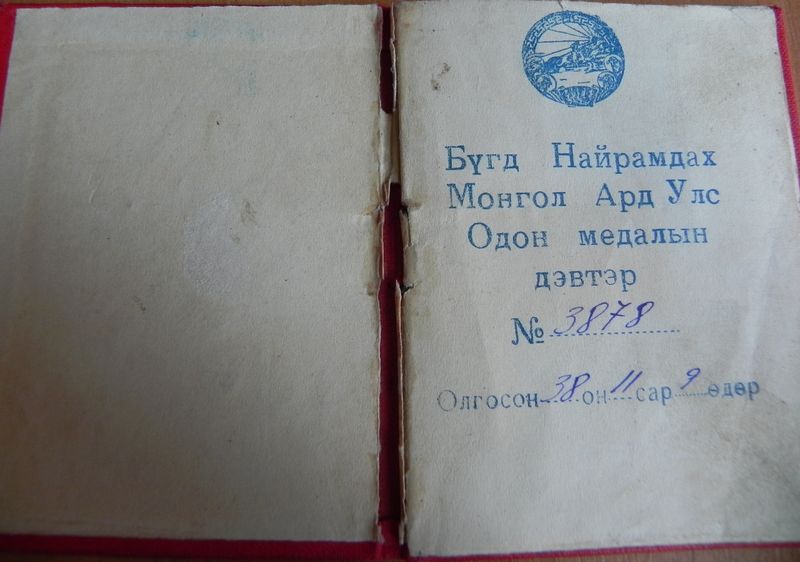 Бүгд Найрамдах
Монгол Ард Улс
Одон медалын
дэвтэр
№ 3878
Олгосон 38 он 11 сар 9 өдөр